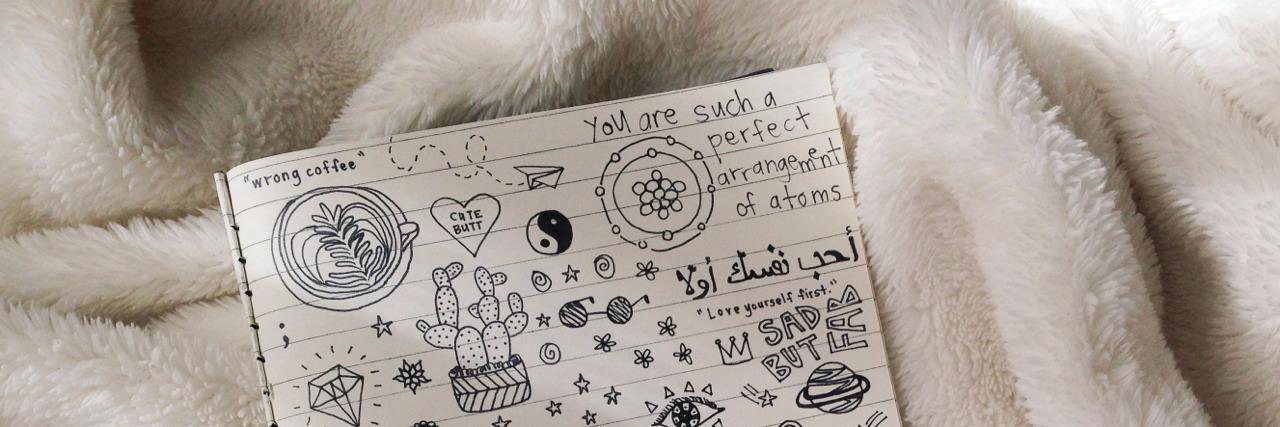 "wrong coffee"
you are such a
perfect
arrangement
of atoms
CUTE
BUTT
أحب نفسك أولا
"Love yourself first."
SAD
BUT
FAB
;